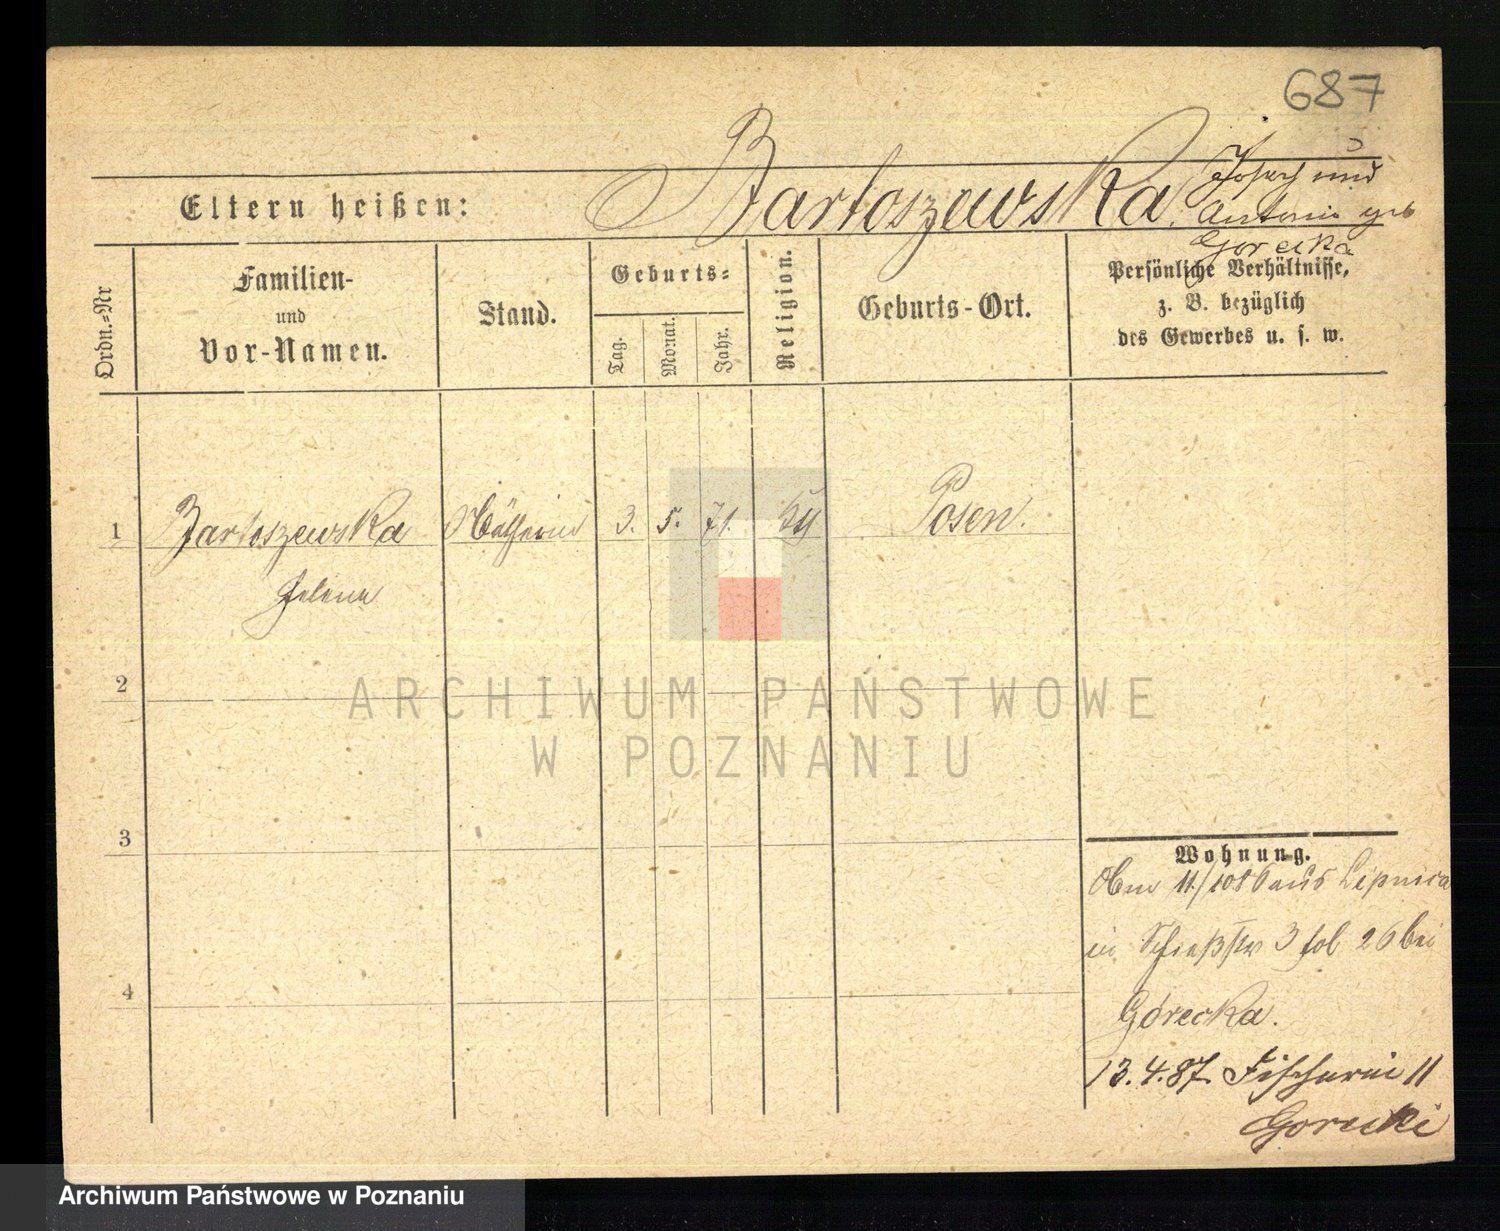 687
Bartoszewska
Josef und
Eltern heißen:
Antonie geb
Gorecka
Ordn.=Nr
Familien-
und
Vor-Namen.
Stand.
Geburts=
Tag.
Monat.
Jahr.
Religion.
Geburts-Ort.
Persönliche Verhältnisse,
z. B. bezüglich
des Gewerbes u. s. w.
1 Bartoszewska Näherin 3. 5. 71. Posen.
Helena
2
ARCHIWUM PAŃSTWOWE
W POZNANIU
3
Wohnung.
11/10 86 aus Lipnica
in 3 26 bei
4
Górecka.
13.4.87. Fischerei 11
Gorecki
Archiwum Państwowe w Poznaniu